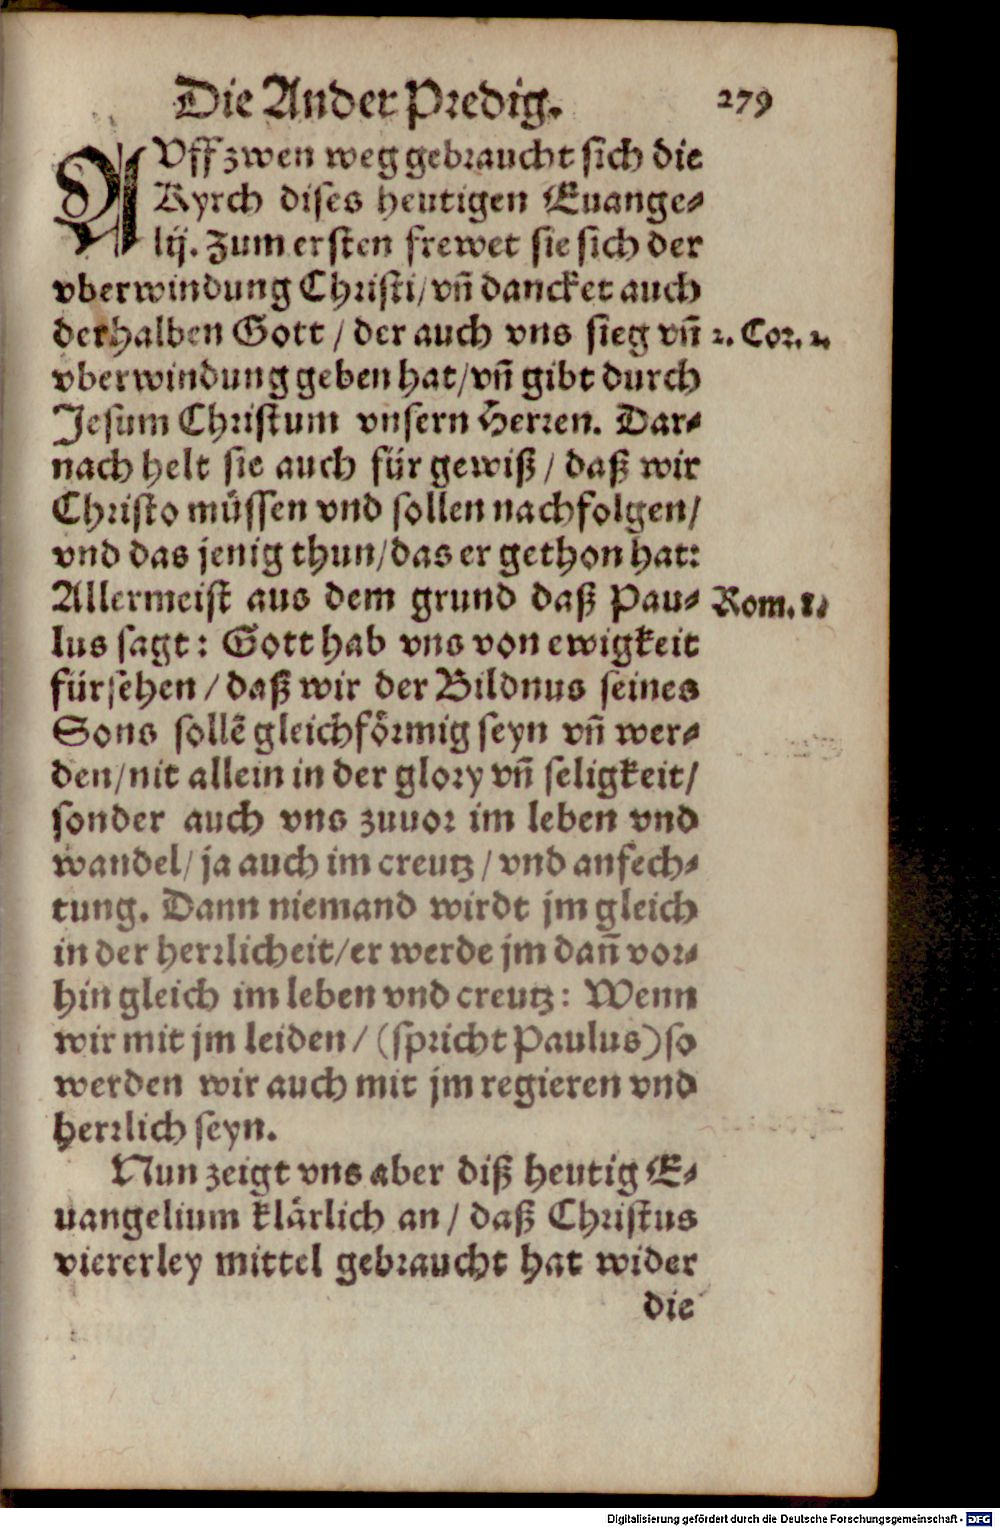 Die Ander Predig. 279
AVff zwen weg gebraucht sich die
Kyrch dises heutigen Euange-
lij. Zum ersten frewet sie sich der
vberwindung Christi/ vñ dancket auch
derhalben Gott / der auch vns sieg vñ 2. Cor. 2.
vberwindung geben hat/ vñ gibt durch
Jesum Christum vnsern Herren. Dar-
nach helt sie auch für gewiß / daß wir
Christo müssen vnd sollen nachfolgen/
vnd das jenig thun/ das er gethon hat:
Allermeist aus dem grund daß Pau- Rom. 8.
lus sagt: Gott hab vns von ewigkeit
fürsehen / daß wir der Bildnus seines
Sons sollẽ gleichförmig seyn vñ wer-
den/ nit allein in der glory vñ seligkeit/
sonder auch vns zuuor im leben vnd
wandel/ ja auch im creutz / vnd anfech-
tung. Dann niemand wirdt jm gleich
in der herrlicheit/ er werde jm dañ vor-
hin gleich im leben vnd creutz: Wenn
wir mit jm leiden / (spricht Paulus) so
werden wir auch mit jm regieren vnd
herrlich seyn.
Nun zeigt vns aber diß heutig E-
uangelium klärlich an / daß Christus
viererley mittel gebraucht hat wider
die
Digitalisierung gefördert durch die Deutsche Forschungsgemeinschaft - DFG